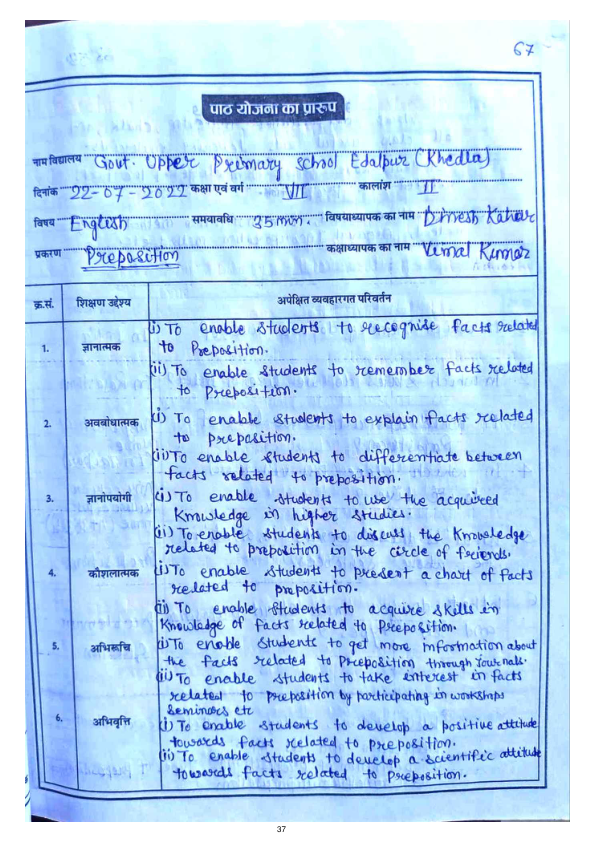 67
पाठ योजना का प्रारूप
नाम विद्यालय Govt. Upper Primary School Edalpur (Khedla)
दिनांक 22-07-2022 कक्षा एवं वर्ग VII कालांश II
विषय English समयावधि 35 min. विषयाध्यापक का नाम Dinesh Katar
प्रकरण Preposition कक्षाध्यापक का नाम Vimal Kumar
क्र.सं. शिक्षण उद्देश्य अपेक्षित व्यवहारगत परिवर्तन
1. ज्ञानात्मक (i) To enable students to recognise facts related
to Preposition.
(ii) To enable students to remember facts related
to Preposition.
2. अवबोधात्मक (i) To enable students to explain facts related
to preposition.
(ii) To enable students to differentiate between
facts related to preposition.
3. ज्ञानोपयोगी (i) To enable students to use the acquired
Knowledge in higher studies.
(ii) To enable students to discuss the Knowledge
related to preposition in the circle of friends.
4. कौशलात्मक (i) To enable students to present a chart of facts
related to preposition.
(ii) To enable students to acquire skills in
Knowledge of facts related to Preposition.
5. अभिरूचि (i) To enable students to get more information about
the facts related to Preposition through Journals.
(ii) To enable students to take interest in facts
related to preposition by participating in workshops
Seminors etc
6. अभिवृत्ति (i) To enable students to develop a positive attitude
towards facts related to preposition.
(ii) To enable students to develop a scientific attitude
towards facts related to Preposition.
37